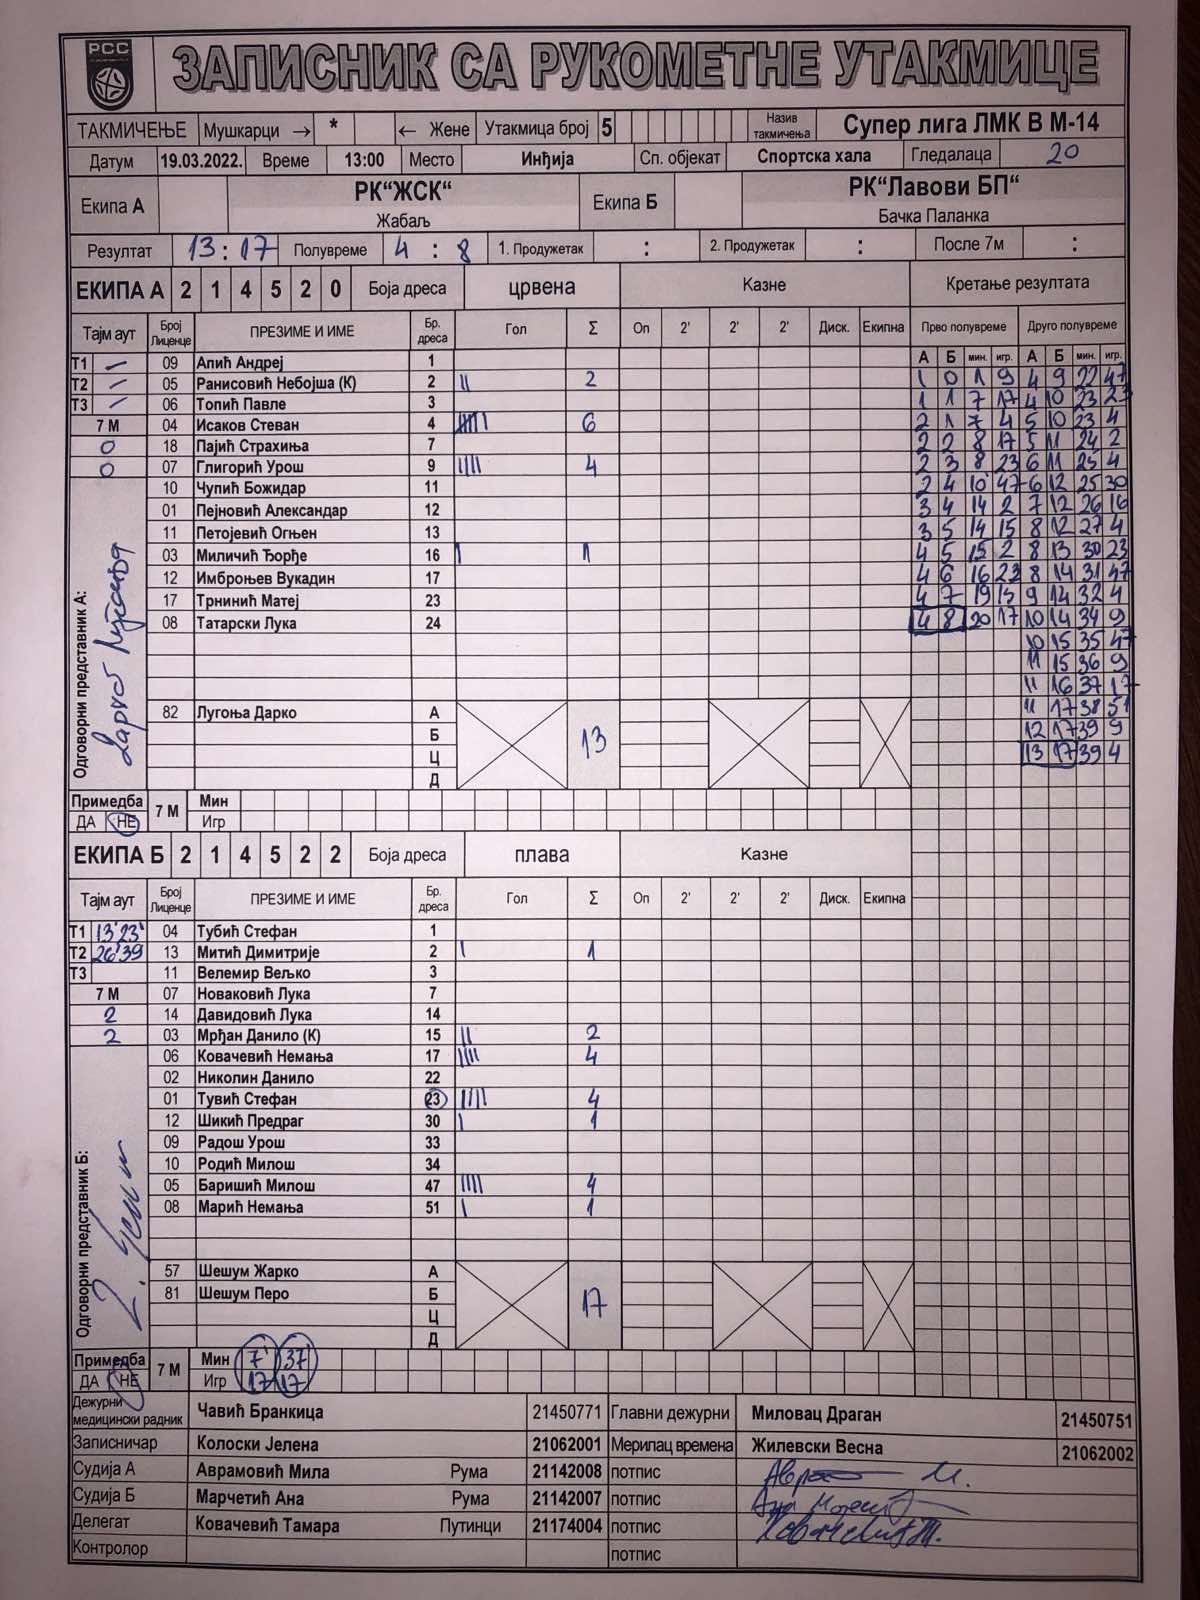 РСС
ЗАПИСНИК СА РУКОМЕТНЕ УТАКМИЦЕ
ТАКМИЧЕЊЕ Мушкарци → * ← Жене Утакмица број 5 Назив такмичења Супер лига ЛМК В М-14
Датум 19.03.2022. Време 13:00 Место Инђија Сп. објекат Спортска хала Гледалаца 20
Екипа А РК“ЖСК“ Екипа Б РК“Лавови БП“
Жабаљ Бачка Паланка
Резултат 13:17 Полувреме 4 : 8 1. Продужетак : 2. Продужетак : После 7м :
ЕКИПА А 2 1 4 5 2 0 Боја дреса црвена Казне Кретање резултата
Тајм аут Број Лиценце ПРЕЗИМЕ И ИМЕ Бр. дреса Гол Σ Оп 2' 2' 2' Диск. Екипна Прво полувреме Друго полувреме
А Б мин. игр. А Б мин. игр.
Т1 – 09 Апић Андреј 1
1 0 1 9 4 9 22 47
Т2 – 05 Ранисовић Небојша (К) 2 || 2
1 1 7 17 4 10 23 23
Т3 – 06 Топић Павле 3
2 1 7 4 5 10 23 4
7 М 04 Исаков Стеван 4 6
2 2 8 17 5 11 24 2
0 18 Пајић Страхиња 7
2 3 8 23 6 11 25 4
0 07 Глигорић Урош 9 |||| 4
2 4 10 47 6 12 25 30
10 Чупић Божидар 11
3 4 14 2 7 12 26 16
01 Пејновић Александар 12
3 5 14 15 8 12 27 4
11 Петојевић Огњен 13
4 5 15 2 8 13 30 23
03 Миличић Ђорђе 16 | 1
4 6 16 23 8 14 31 47
12 Имброњев Вукадин 17
4 7 19 15 9 14 32 4
17 Трнинић Матеј 23
4 8 20 17 10 14 34 9
08 Татарски Лука 24
10 15 35 47
11 15 36 9
11 16 37 17
11 17 38 51
12 17 39 9
13 17 39 4
Одговорни представник А:
82 Лугоња Дарко А
Б 13
Ц
Д
Примедба 7 М Мин
ДА НЕ Игр
ЕКИПА Б 2 1 4 5 2 2 Боја дреса плава Казне
Тајм аут Број Лиценце ПРЕЗИМЕ И ИМЕ Бр. дреса Гол Σ Оп 2' 2' 2' Диск. Екипна
Т1 13'23' 04 Тубић Стефан 1
Т2 26'39 13 Митић Димитрије 2 | 1
Т3 11 Велемир Вељко 3
7 М 07 Новаковић Лука 7
2 14 Давидовић Лука 14
2 03 Мрђан Данило (К) 15 || 2
06 Ковачевић Немања 17 |||| 4
02 Николин Данило 22
01 Тувић Стефан 23 |||| 4
12 Шикић Предраг 30 | 1
09 Радош Урош 33
10 Родић Милош 34
05 Баришић Милош 47 |||| 4
08 Марић Немања 51 | 1
Одговорни представник Б:
57 Шешум Жарко А
81 Шешум Перо Б 17
Ц
Д
Примедба 7 М Мин 7' 37'
ДА НЕ Игр 17 17
Дежурни медицински радник Чавић Бранкица 21450771 Главни дежурни Миловац Драган 21450751
Записничар Колоски Јелена 21062001 Мерилац времена Жилевски Весна 21062002
Судија А Аврамовић Мила Рума 21142008 потпис
Судија Б Марчетић Ана Рума 21142007 потпис
Делегат Ковачевић Тамара Путинци 21174004 потпис
Контролор потпис